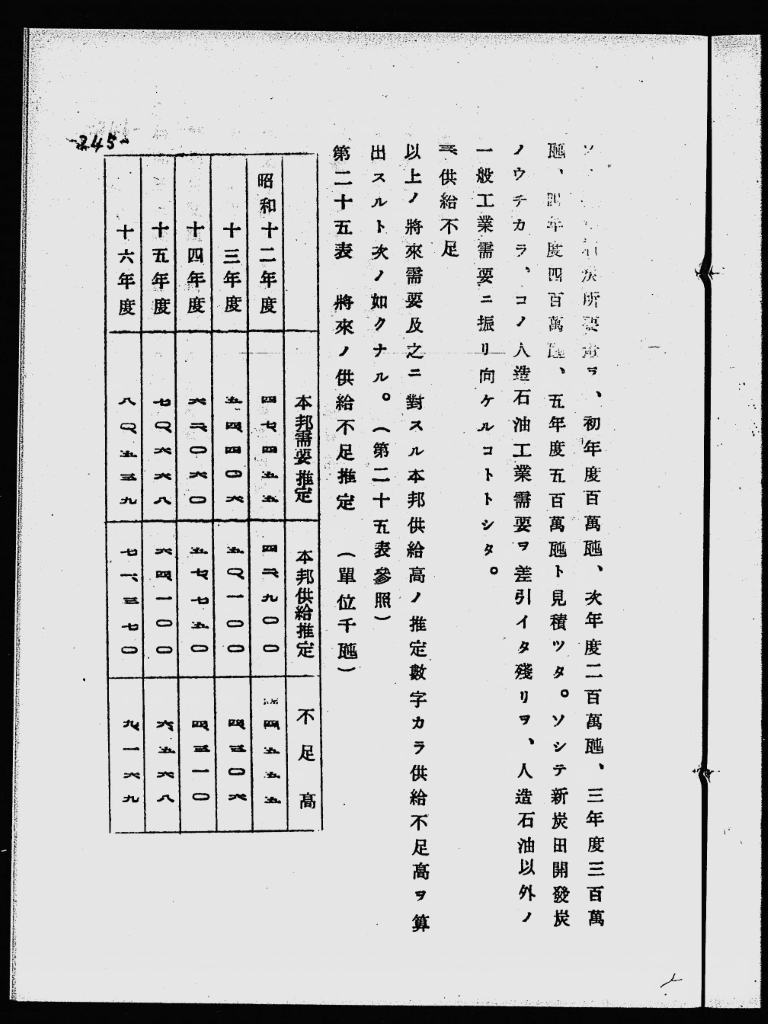 石炭所要高ヲ、初年度百萬瓲、次年度二百萬瓲、三年度三百萬
瓲、四年度四百萬瓲、五年度五百萬瓲ト見積ツタ。ソシテ新炭田開發炭
ノウチカラ、コノ人造石油工業需要ヲ差引イタ殘リヲ、人造石油以外ノ
一般工業需要ニ振リ向ケルコトトシタ。
三、供給不足
以上ノ將來需要及之ニ對スル本邦供給高ノ推定數字カラ供給不足高ヲ算
出スルト次ノ如クナル。(第二十五表參照)
第二十五表 將來ノ供給不足推定 (單位千瓲)
本邦需要推定 本邦供給推定 不足高
昭和十二年度 四七、四五五 四二、九〇〇 四、五五五
十三年度 五四、四〇六 五〇、一〇〇 四、三〇六
十四年度 六二、〇六〇 五七、七五〇 四、三一〇
十五年度 七〇、六六八 六四、一〇〇 六、五六八
十六年度 八〇、五三九 七一、三七〇 九、一六九
-245-